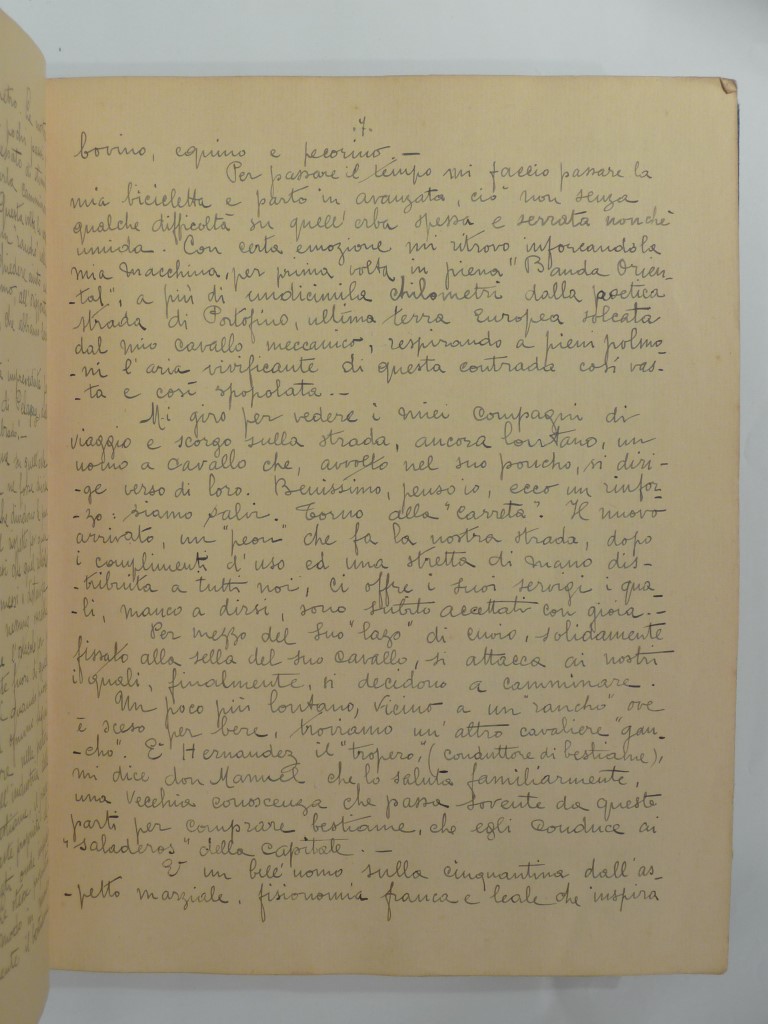 .7.
bovino, equino e pecorino. –
Per passare il tempo mi faccio passare la
mia bicicletta e parto in avanzata, ciò non senza
qualche difficoltà su quell'erba spessa e serrata nonchè
umida. Con certa emozione mi ritrovo inforcando la
mia macchina, per prima volta in piena "Banda Orien-
-tal", a più di undicimila chilometri dalla poetica
strada di Portofino, ultima terra Europea solcata
dal mio cavallo meccanico, respirando a pieni polmo-
-ni l'aria vivificante di questa contrada così vas-
-ta e così spopolata. –
Mi giro per vedere i miei compagni di
viaggio e scorgo sulla strada, ancora lontano, un
uomo a cavallo che, avvolto nel suo poncho, si diri-
-ge verso di loro. Benissimo, penso io, ecco un rinfor-
-zo: siamo salvi. Torno alla "Carreta". Il nuovo
arrivato, un "peon" che fa la nostra strada, dopo
i complimenti d'uso ed una stretta di mano dis-
-tribuita a tutti noi, ci offre i suoi servigi i qua-
-li, manco a dirsi, sono subito accettati con gioia. –
Per mezzo del suo "lazo" di cuoio, solidamente
fissato alla sella del suo cavallo, si attacca ai nostri
i quali, finalmente, si decidono a camminare.
Un poco più lontano, vicino a un "rancho" ove
è sceso per bere, troviamo un'altro cavaliere "gau-
-cho". E' Hernandez il "tropero", (conduttore di bestiame),
mi dice don Manuel che lo saluta familiarmente,
una vecchia conoscenza che passa sovente da queste
parti per comprare bestiame, che egli conduce ai
"saladeros" della capitale. –
E' un bell'uomo sulla cinquantina dall'as-
-petto marziale, fisionomia franca e leale che inspira